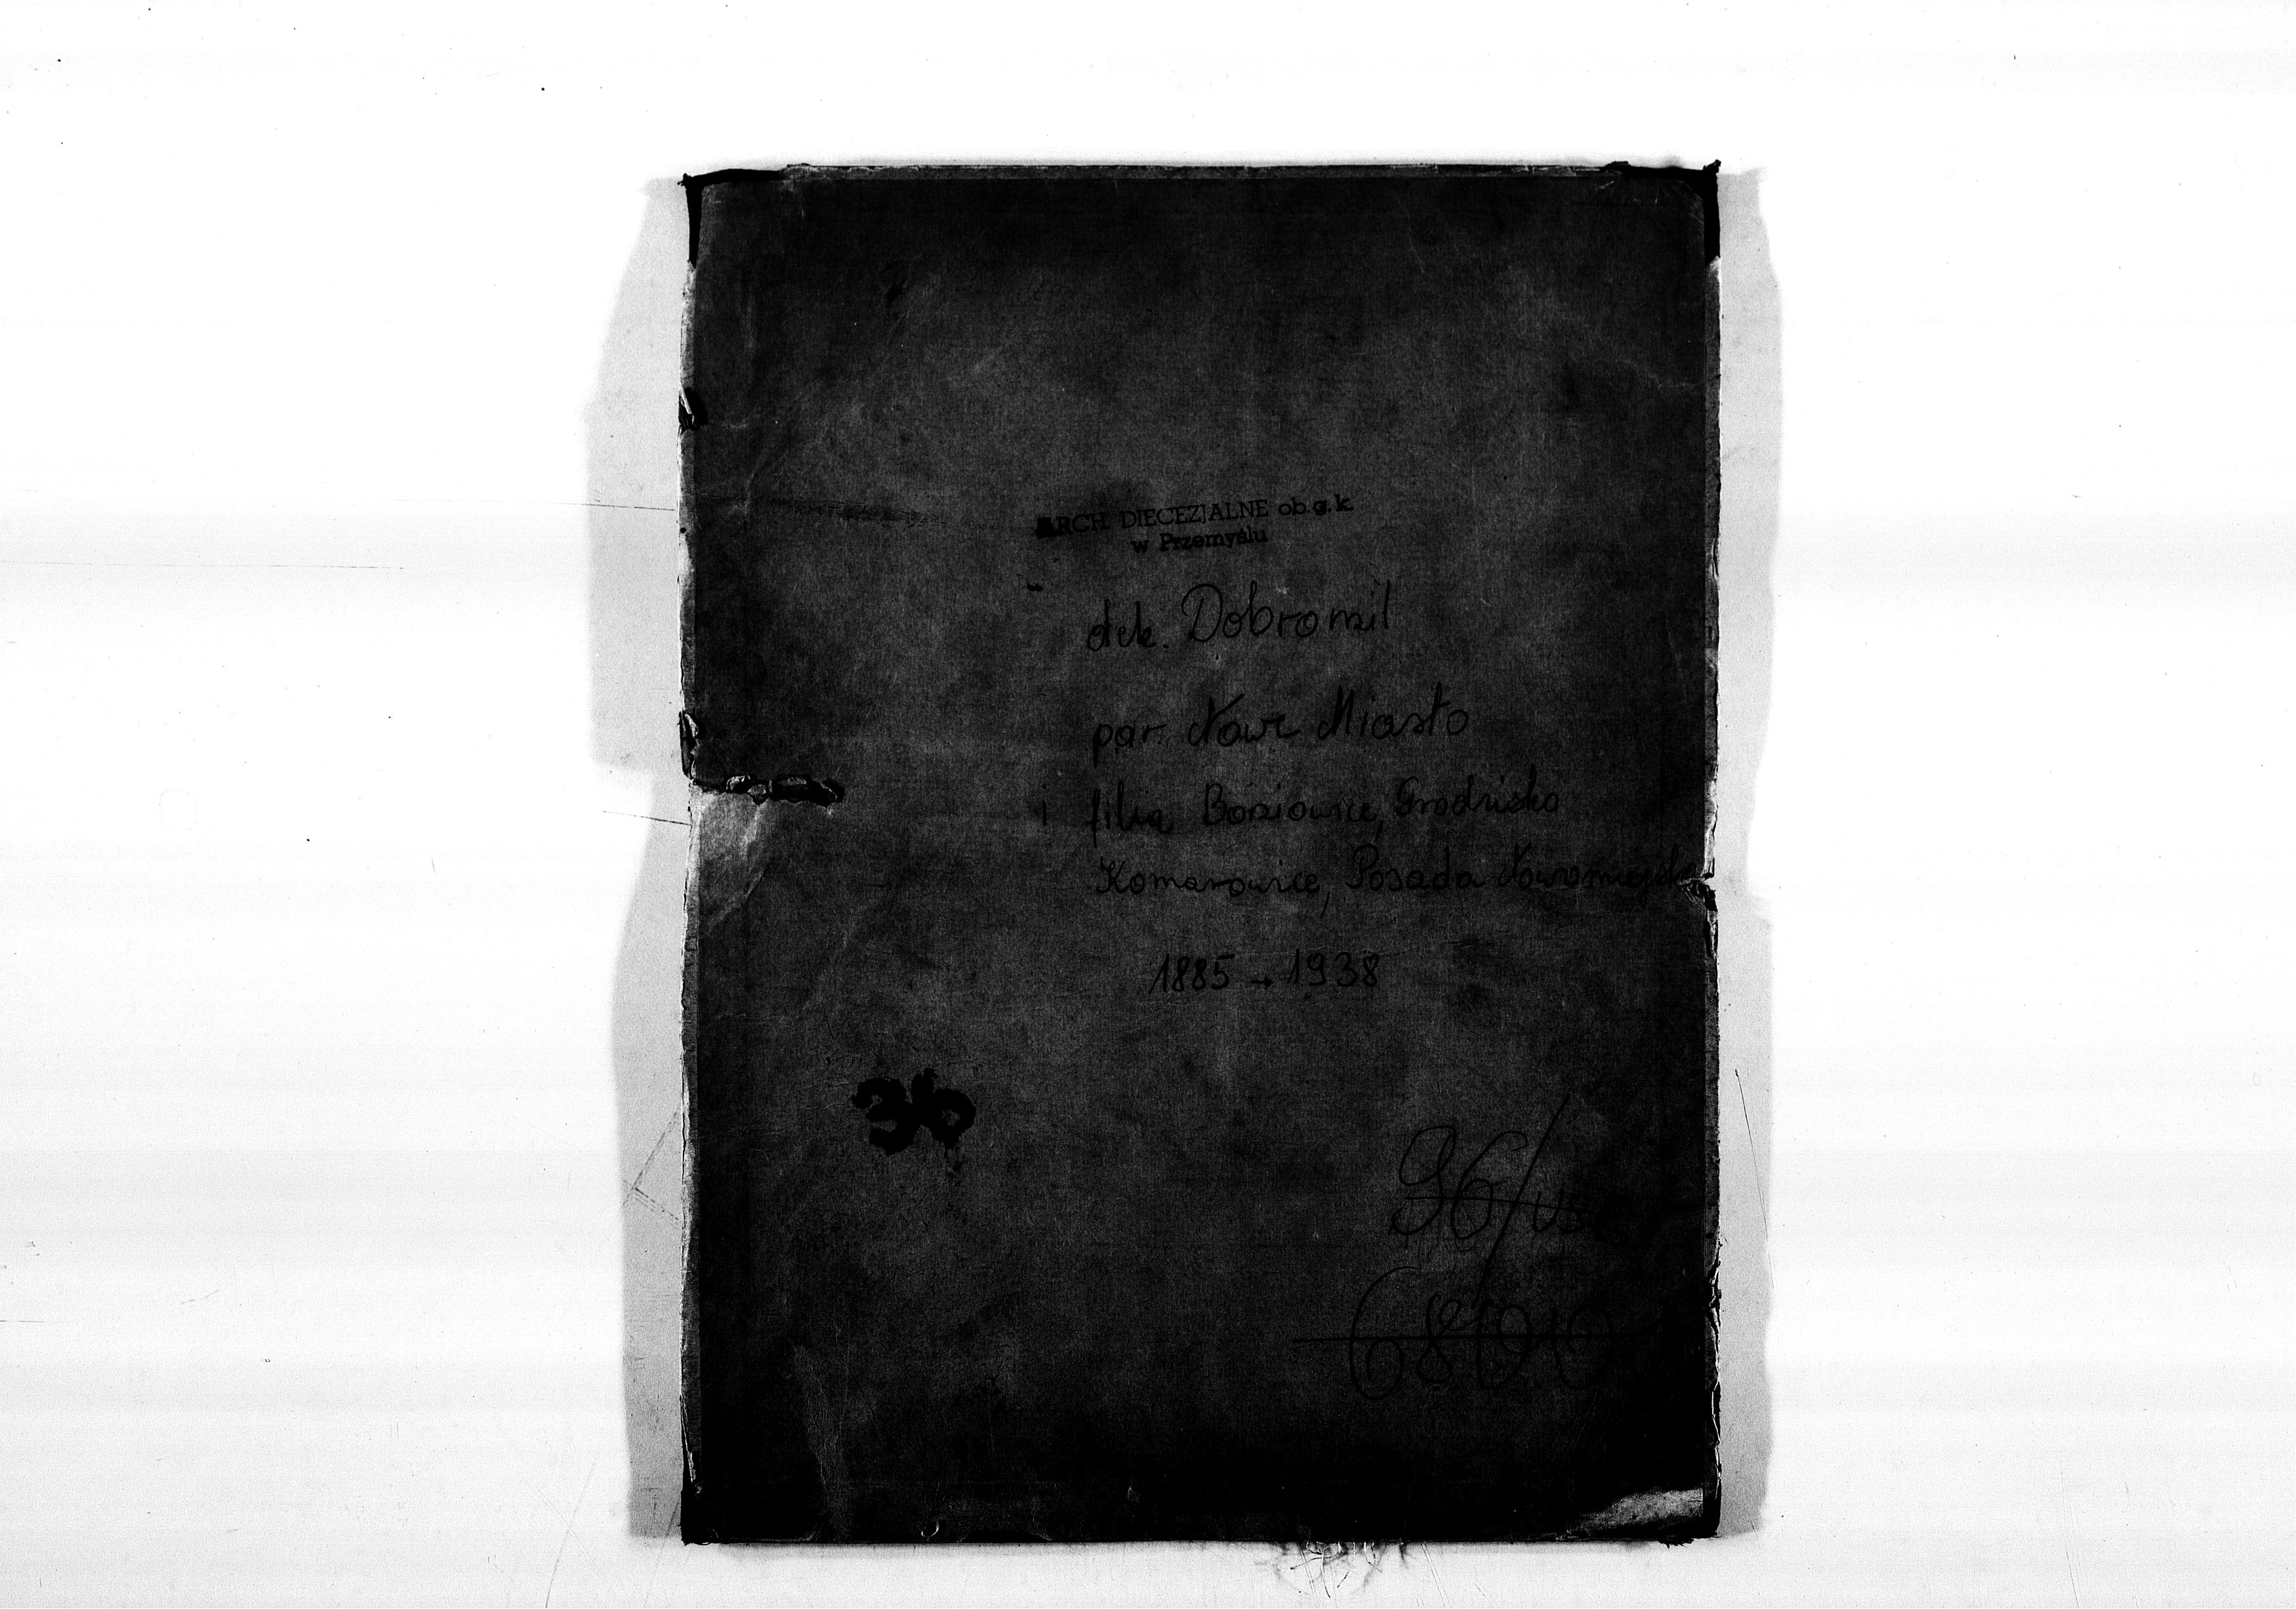 ARCH. DIECEZJALNE ob. g. k.
w Przemyślu
dek. Dobromil
par. Nowe Miasto
i filia Boniowice, Grodzisko
Komarowice, Posada Nowomiejska
1885 - 1938
36
96/